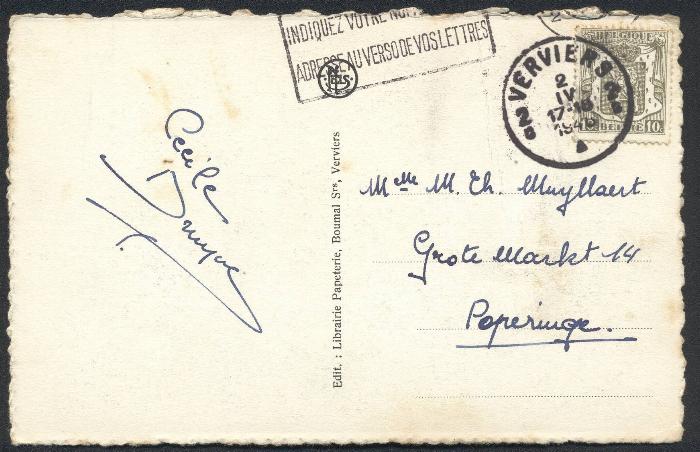 INDIQUEZ VOTRE NOM
ADRESSE AU VERSO DE VOS LETTRES
VERVIERS
2
IV
17-18
194
BELGIQUE
BELGIE
10c
Cécile
Edit. : Librairie Papeterie, Boumal Srs, Verviers
Melle M. Th. Muyllaert
Grote Markt 14
Poperinge.